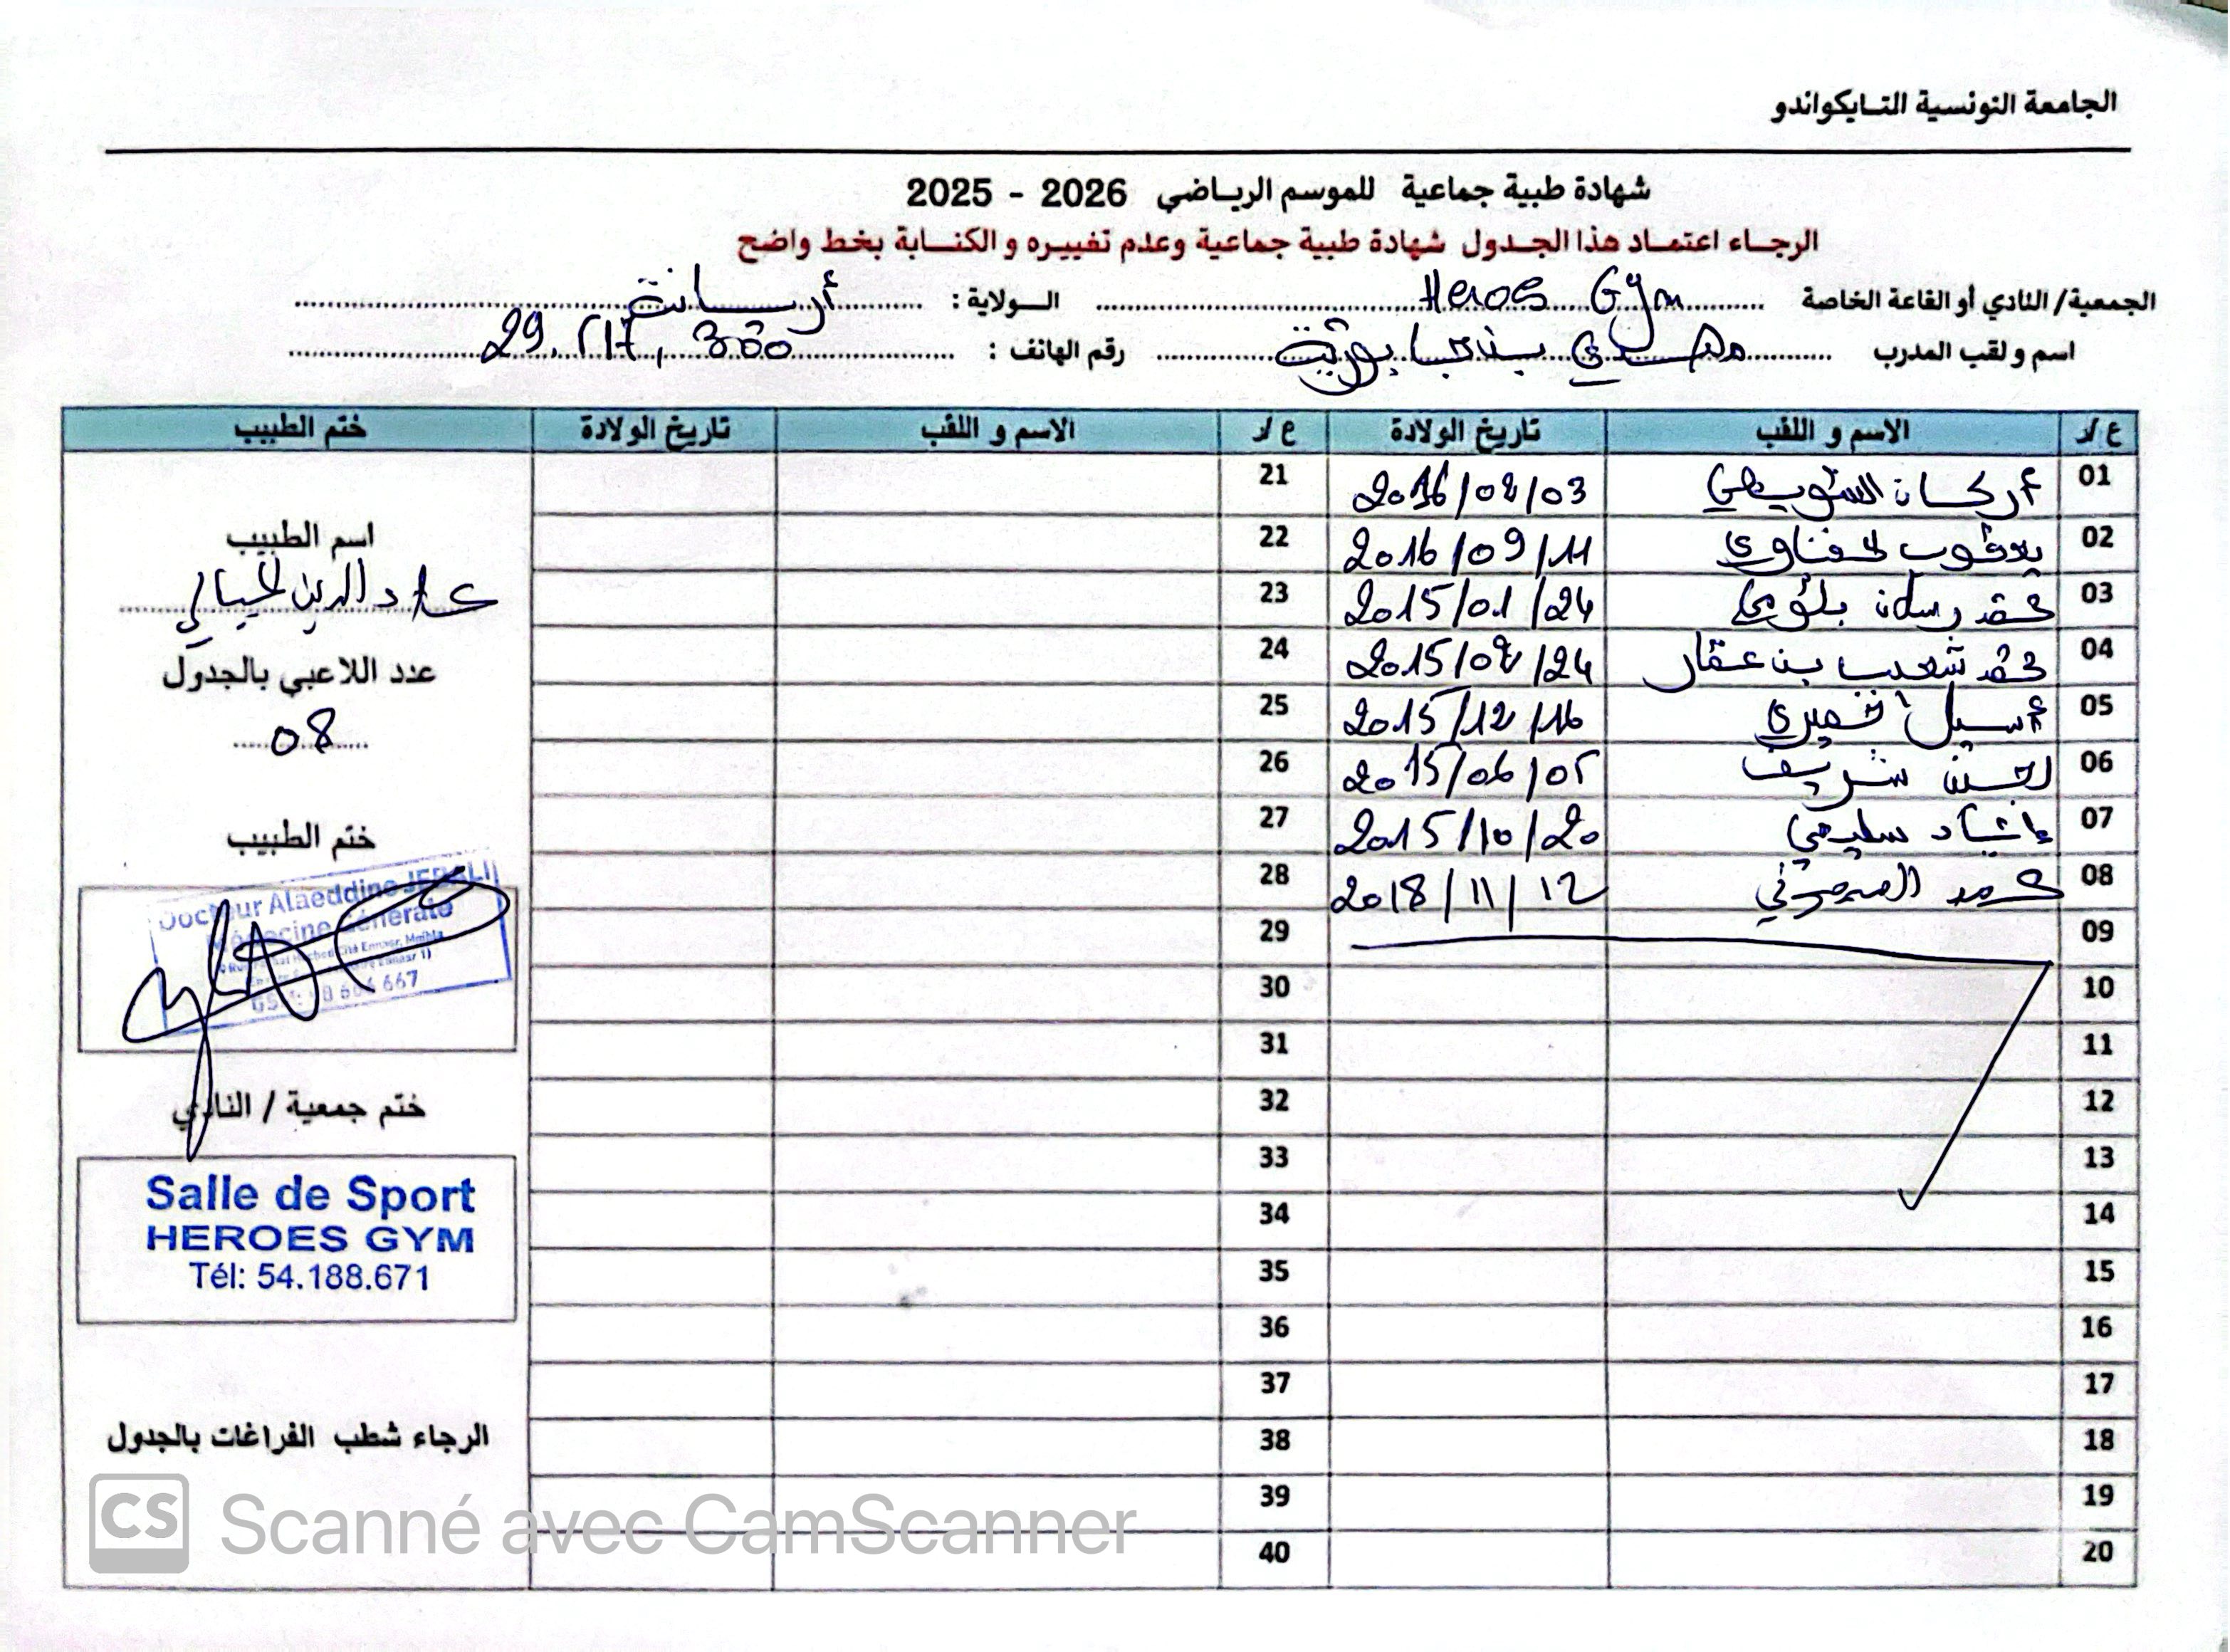 الجامعة التونسية للتايكواندو
شهادة طبية جماعية للموسم الرياضي 2026 - 2025
الرجاء اعتماد هذا الجدول شهادة طبية جماعية وعدم تغييره و الكتابة بخط واضح
الجمعية/ النادي أو القاعة الخاصة Heroes Gym الولاية : أريانة
اسم و لقب المدرب مهدي رقم الهاتف : 29.
ع/ر الاسم و اللقب تاريخ الولادة ع/ر الاسم و اللقب تاريخ الولادة ختم الطبيب
01 أركان السويسي 2016/02/03 21
02 يعقوب الحفناوي 2016/09/11 22
03 محمد رسلان 2015/01/24 23
04 محمد شعيب بن عمار 2015/02/24 24
05 أسيل 2015/12/16 25
06 شريف 2015/06/05 26
07 إياد سليمي 2015/10/20 27
08 2018/11/12 28
09 29
10 30
11 31
12 32
13 33
14 34
15 35
16 36
17 37
18 38
19 39
20 40
اسم الطبيب
علاء الدين الجبالي
عدد اللاعبي بالجدول
08
ختم الطبيب
Docteur Alaeddine JEBALI
Médecine Générale
ختم جمعية / النادي
Salle de Sport
HEROES GYM
Tél: 54.188.671
الرجاء شطب الفراغات بالجدول
CS Scanné avec CamScanner